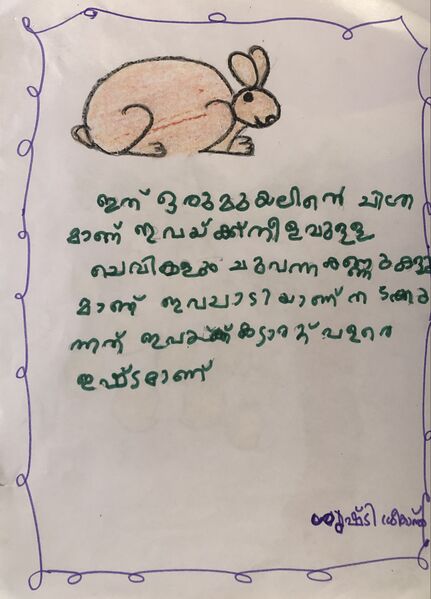 ഇത് ഒരു മുയലിന്റെ ചിത്ര
മാണ് ഇവയ്ക്ക് നീളവുള്ള
ചെവികളും ചുവന്ന കണ്ണുകളു
മാണ് ഇവചാടിയാണ് നടക്കു
ന്നത് ഇവയ്ക്ക് ക്യാരറ്റ് വളരെ
ഇഷ്ടമാണ്